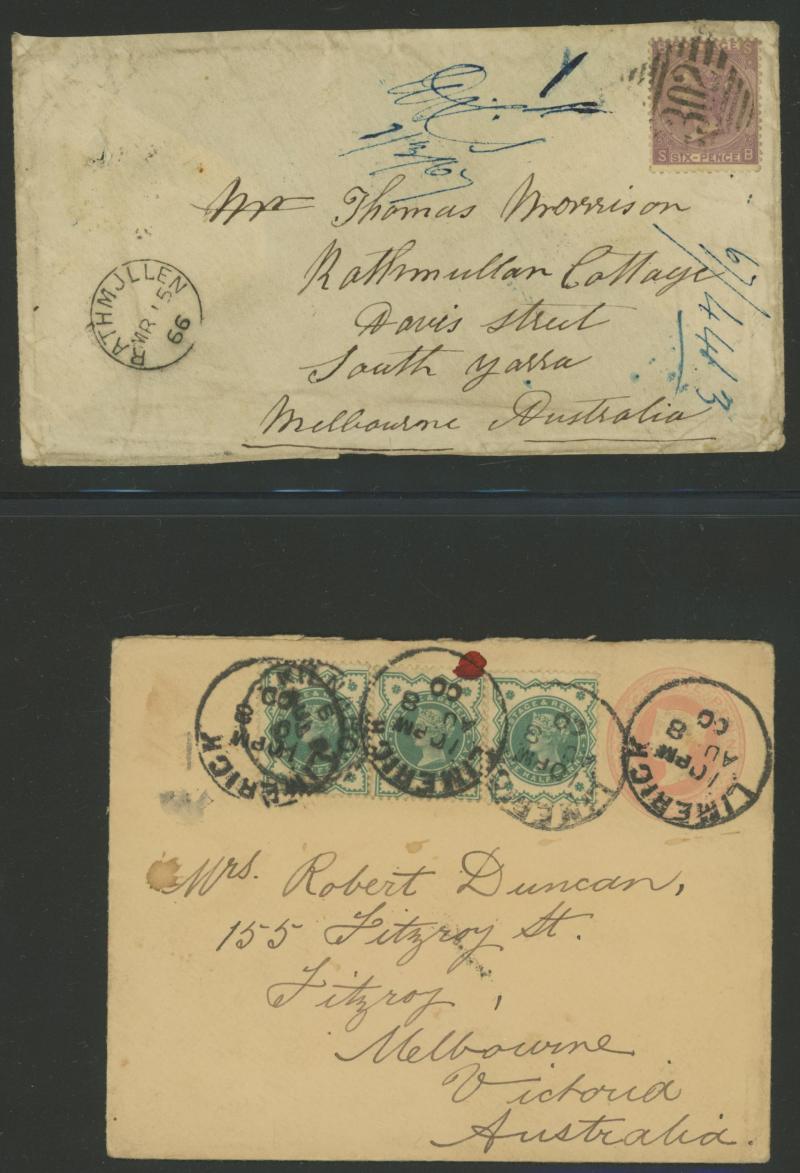 1
302
S B
SIX-PENCE
7/12/67
Mr Thomas Morrison
Rathmullan Cottage
Davis Street
South Yarra
Melbourne Australia
67/4413
RATHMULLEN
MR 15
66
LIMERICK
10 PM
AU 8
00
LIMERICK
10 PM
AU 8
00
LIMERICK
LIMERICK
10 PM
AU 8
00
Mrs. Robert Duncan,
155 Fitzroy St.
Fitzroy,
Melbourne
Victoria
Australia.